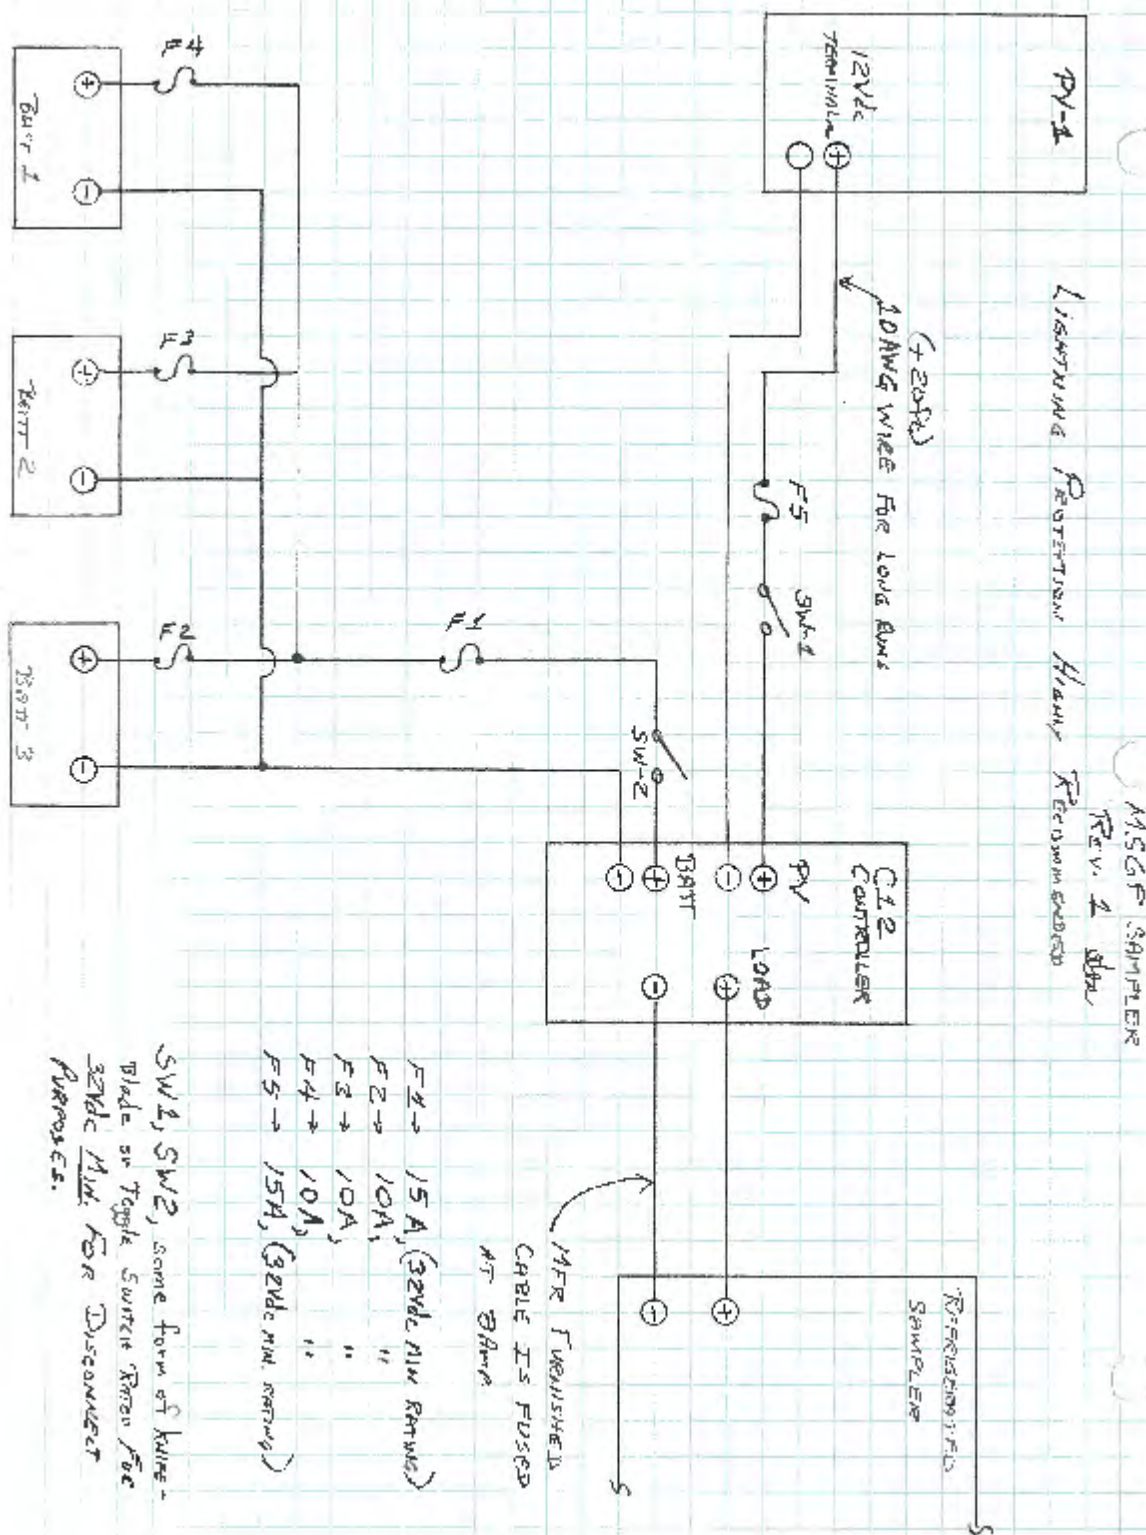 MSGF SAMPLER
REV. 1
LIGHTNING PROTECTION HIGHLY RECOMMENDED
PV-1
12Vdc
TERMINALS
+
(+20ft)
10AWG WIRE FOR LONG RUNS
F5
SW-1
C12
CONTROLLER
PV
LOAD
+
-
BATT
+
-
+
-
REFRIGERATED
SAMPLER
+
-
MFR FURNISHED
CABLE IS FUSED
AT 8AMP
SW-2
F1
F4
F3
F2
+
-
BATT 1
+
-
BATT 2
+
-
BATT 3
F1→ 15A, (32Vdc MIN RATING)
F2→ 10A, "
F3→ 10A, "
F4→ 10A, "
F5→ 15A, (32Vdc MIN. RATING)
SW1, SW2, some form of KNIFE-
Blade or Toggle SWITCH RATED FOR
32Vdc MIN. FOR DISCONNECT
PURPOSES.